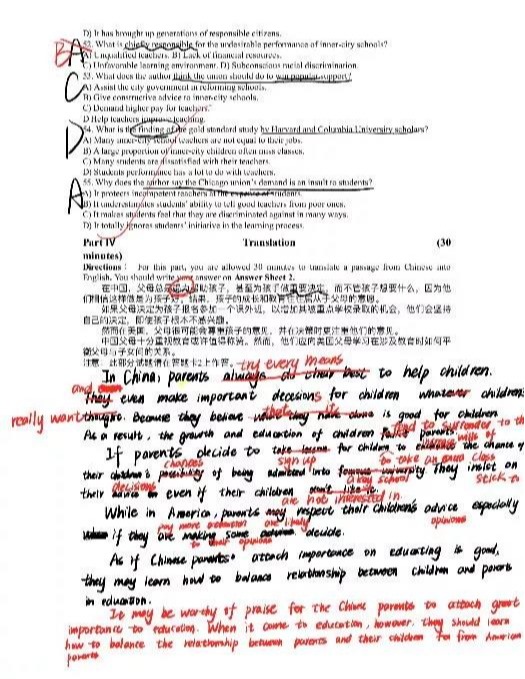 D) It has brought up generations of responsible citizens.
B A
52. What is chiefly responsible for the undesirable performance of inner-city schools?
A) Unqualified teachers. B) Lack of financial resources.
C) Unfavorable learning environment. D) Subconscious racial discrimination.
C
53. What does the author think the union should do to win popular support?
A) Assist the city government in reforming schools.
B) Give constructive advice to inner-city schools.
C) Demand higher pay for teachers.
D Help teachers improve teaching.
D
54. What is the finding of the gold standard study by Harvard and Columbia University scholars?
A) Many inner-city school teachers are not equal to their jobs.
B) A large proportion of inner-city children often miss classes.
C) Many students are dissatisfied with their teachers.
D) Students performance has a lot to do with teachers.
A
55. Why does the author say the Chicago union's demand is an insult to students?
A) It protects incompetent teachers at the expense of students.
B) It underestimates students' ability to tell good teachers from poor ones.
C) It makes students feel that they are discriminated against in many ways.
D) It totally ignores students' initiative in the learning process.
Part IV Translation (30
minutes)
Directions : For this part, you are allowed 30 minutes to translate a passage from Chinese into
English. You should write your answer on Answer Sheet 2.
在中国,父母总是竭力帮助孩子,甚至为孩子做重要决定,而不管孩子想要什么,因为他
们相信这样做是为孩子好。结果,孩子的成长和教育往往屈从于父母的意愿。
如果父母决定为孩子报名参加一个课外班,以增加其被重点学校录取的机会,他们会坚持
自己的决定,即使孩子根本不感兴趣。
然而在美国,父母很可能会尊重孩子的意见,并在决策时更注重他们的意见。
中国父母十分重视教育或许值得称赞。然而,他们应向美国父母学习在涉及教育时如何平
衡父母与子女间的关系。
注意:此部分试题请在答题卡2上作答。
try every means
In China, parents always do their best to help children.
and
They even make important decesions for children whatever children
really want
thought. Because they believe what they have done is good for children
that it
tend to surrender to the
As a result, the growth and education of children parents
wills of
If parents decide to take for children to the chance of
sign up to take an extra class
chances
their children's possibility of being admitted into famous university They insist on
a key school
stick to
decisions
their advice even if their children don't like it.
are not interested in
While in America, parents may respect their children's advice especially
pay more attention are likely opinions
when if they are making some advice decide.
to their opinions
As if Chinese parents attach importance on educating is good,
they may learn how to balance relationship between children and parents
in education.
It may be worthy of praise for the Chinese parents to attach great
importance to education. When it come to education, however, they should learn
how to balance the relationship between parents and their children from American
parents